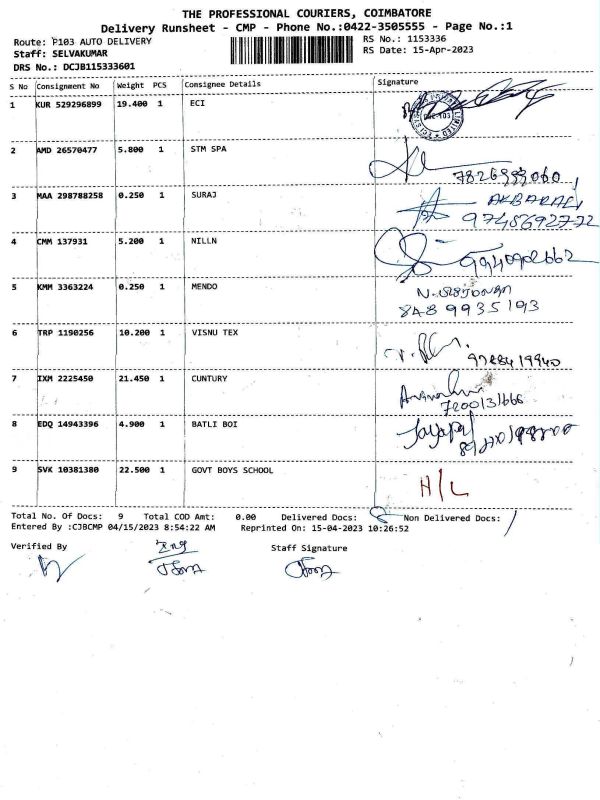 THE PROFESSIONAL COURIERS, COIMBATORE
Delivery Runsheet - CMP - Phone No.:0422-3505555 - Page No.:1
Route: P103 AUTO DELIVERY RS No.: 1153336
Staff: SELVAKUMAR RS Date: 15-Apr-2023
DRS No.: DCJB115333601
S No Consignment No Weight PCS Consignee Details Signature
1 KUR 529296899 19.400 1 ECI
2 AMD 26570477 5.800 1 STM SPA
3 MAA 298788258 0.250 1 SURAJ AKBARALI
9748692772
4 CMM 137931 5.200 1 NILLN
5 KMM 3363224 0.250 1 MENDO
848 9935193
6 TRP 1190256 10.200 1 VISNU TEX
9788419940
7 IXM 2225450 21.450 1 CUNTURY
7200131666
8 EDQ 14943396 4.900 1 BATLI BOI Jayapal
9 SVK 10381380 22.500 1 GOVT BOYS SCHOOL H/L
Total No. Of Docs: 9 Total COD Amt: 0.00 Delivered Docs: 8 Non Delivered Docs: 1
Entered By :CJBCMP 04/15/2023 8:54:22 AM Reprinted On: 15-04-2023 10:26:52
Verified By Staff Signature